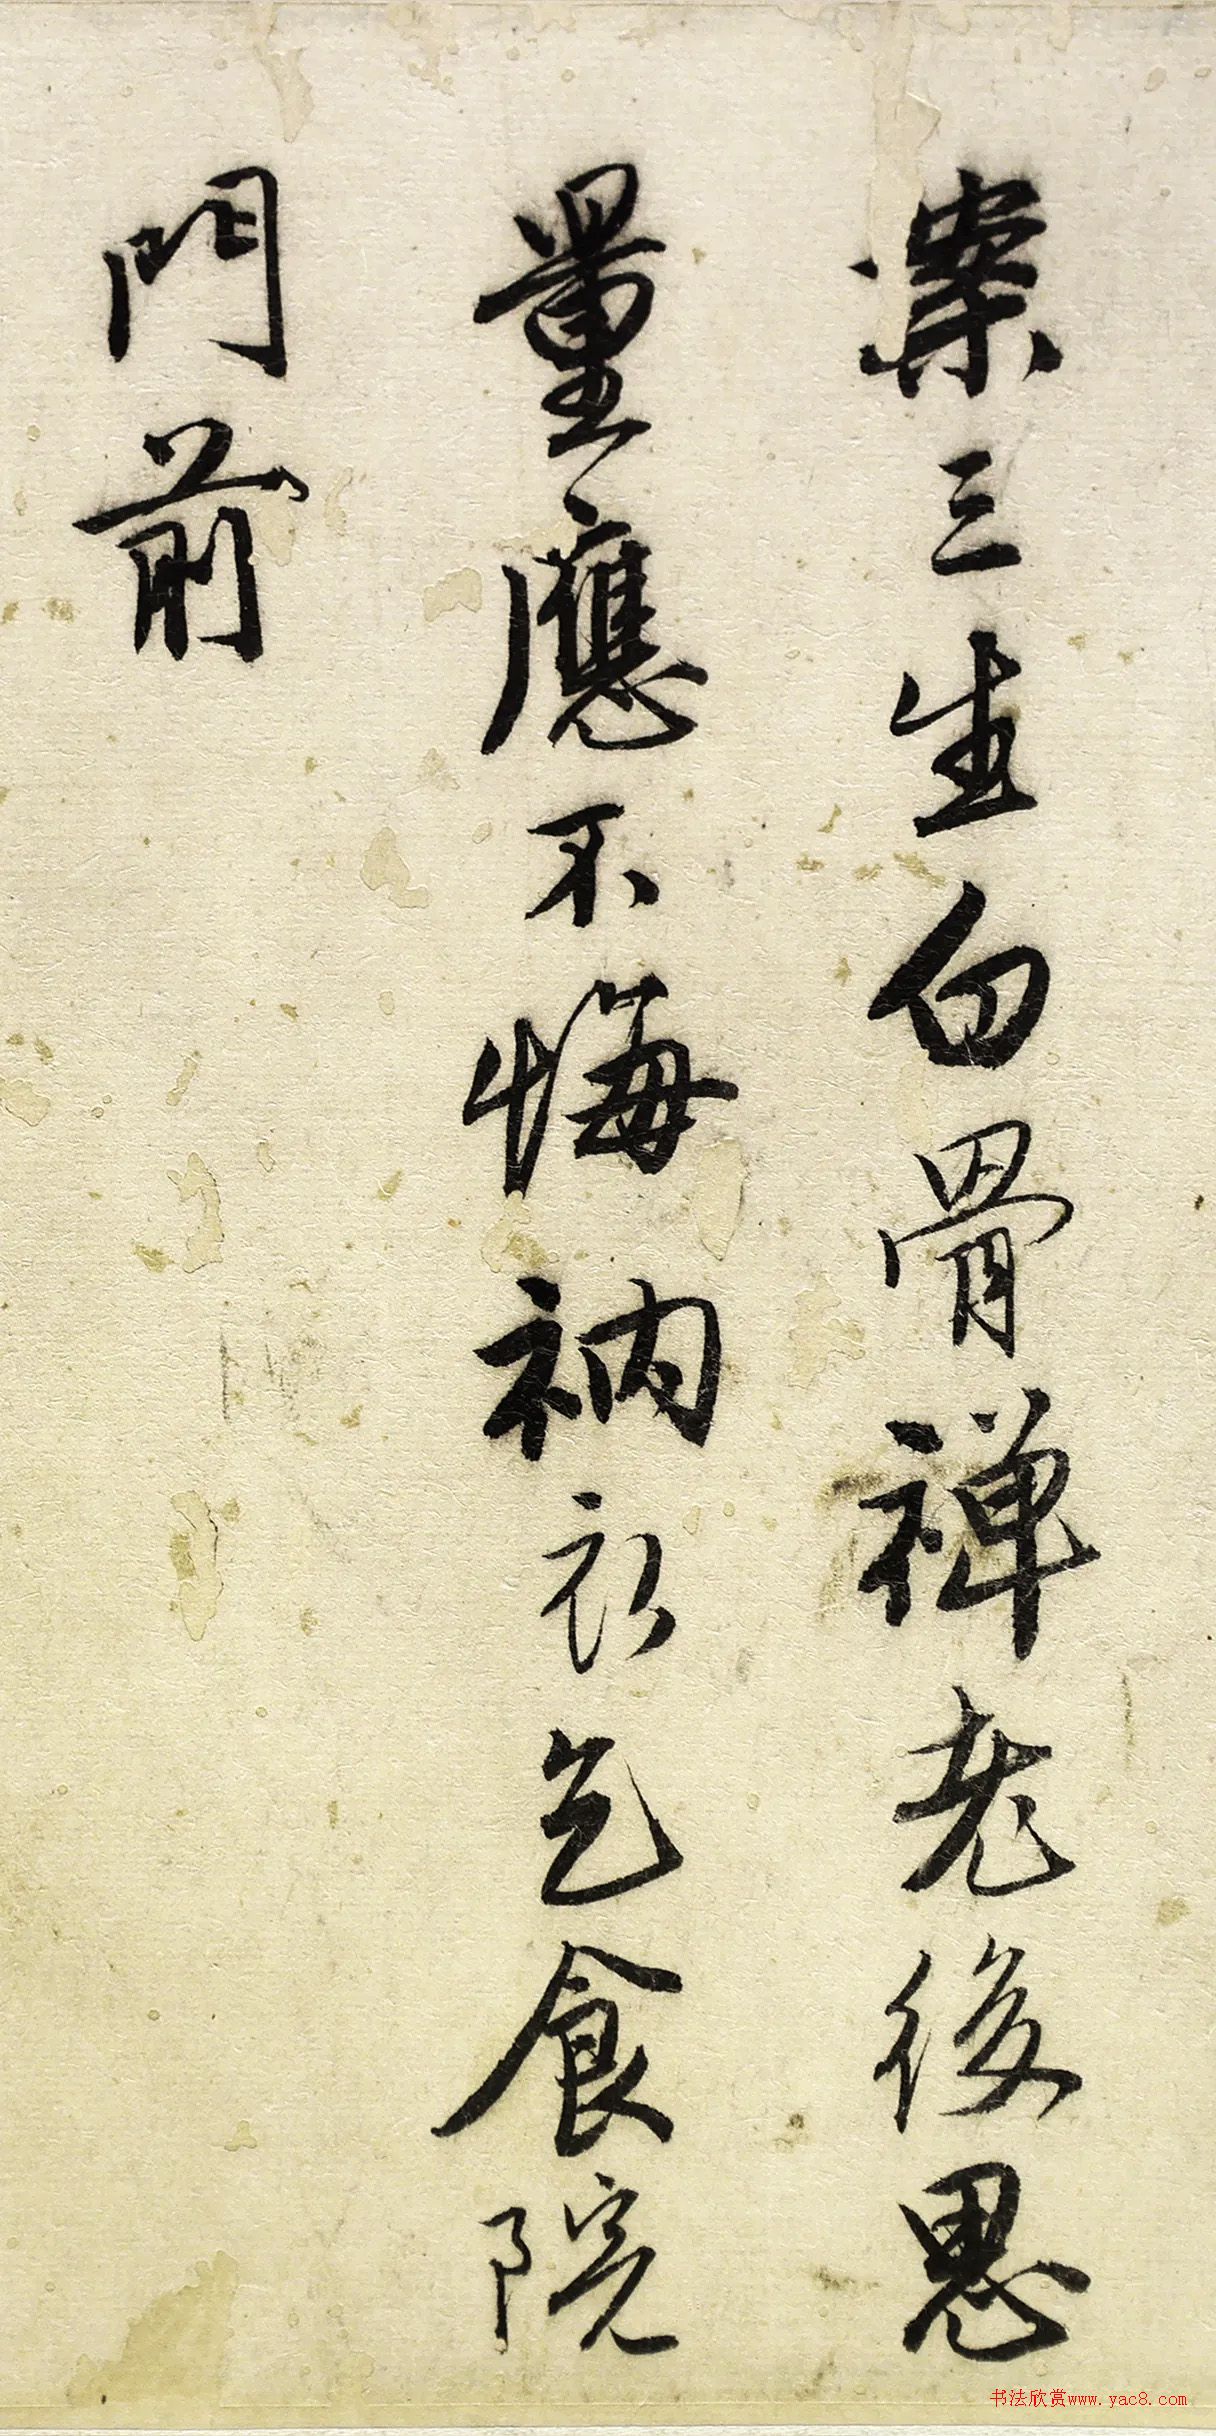 案三生白骨禪老後思
量應不悔衲衣乞食院
門前
书法欣赏www.yac8.com